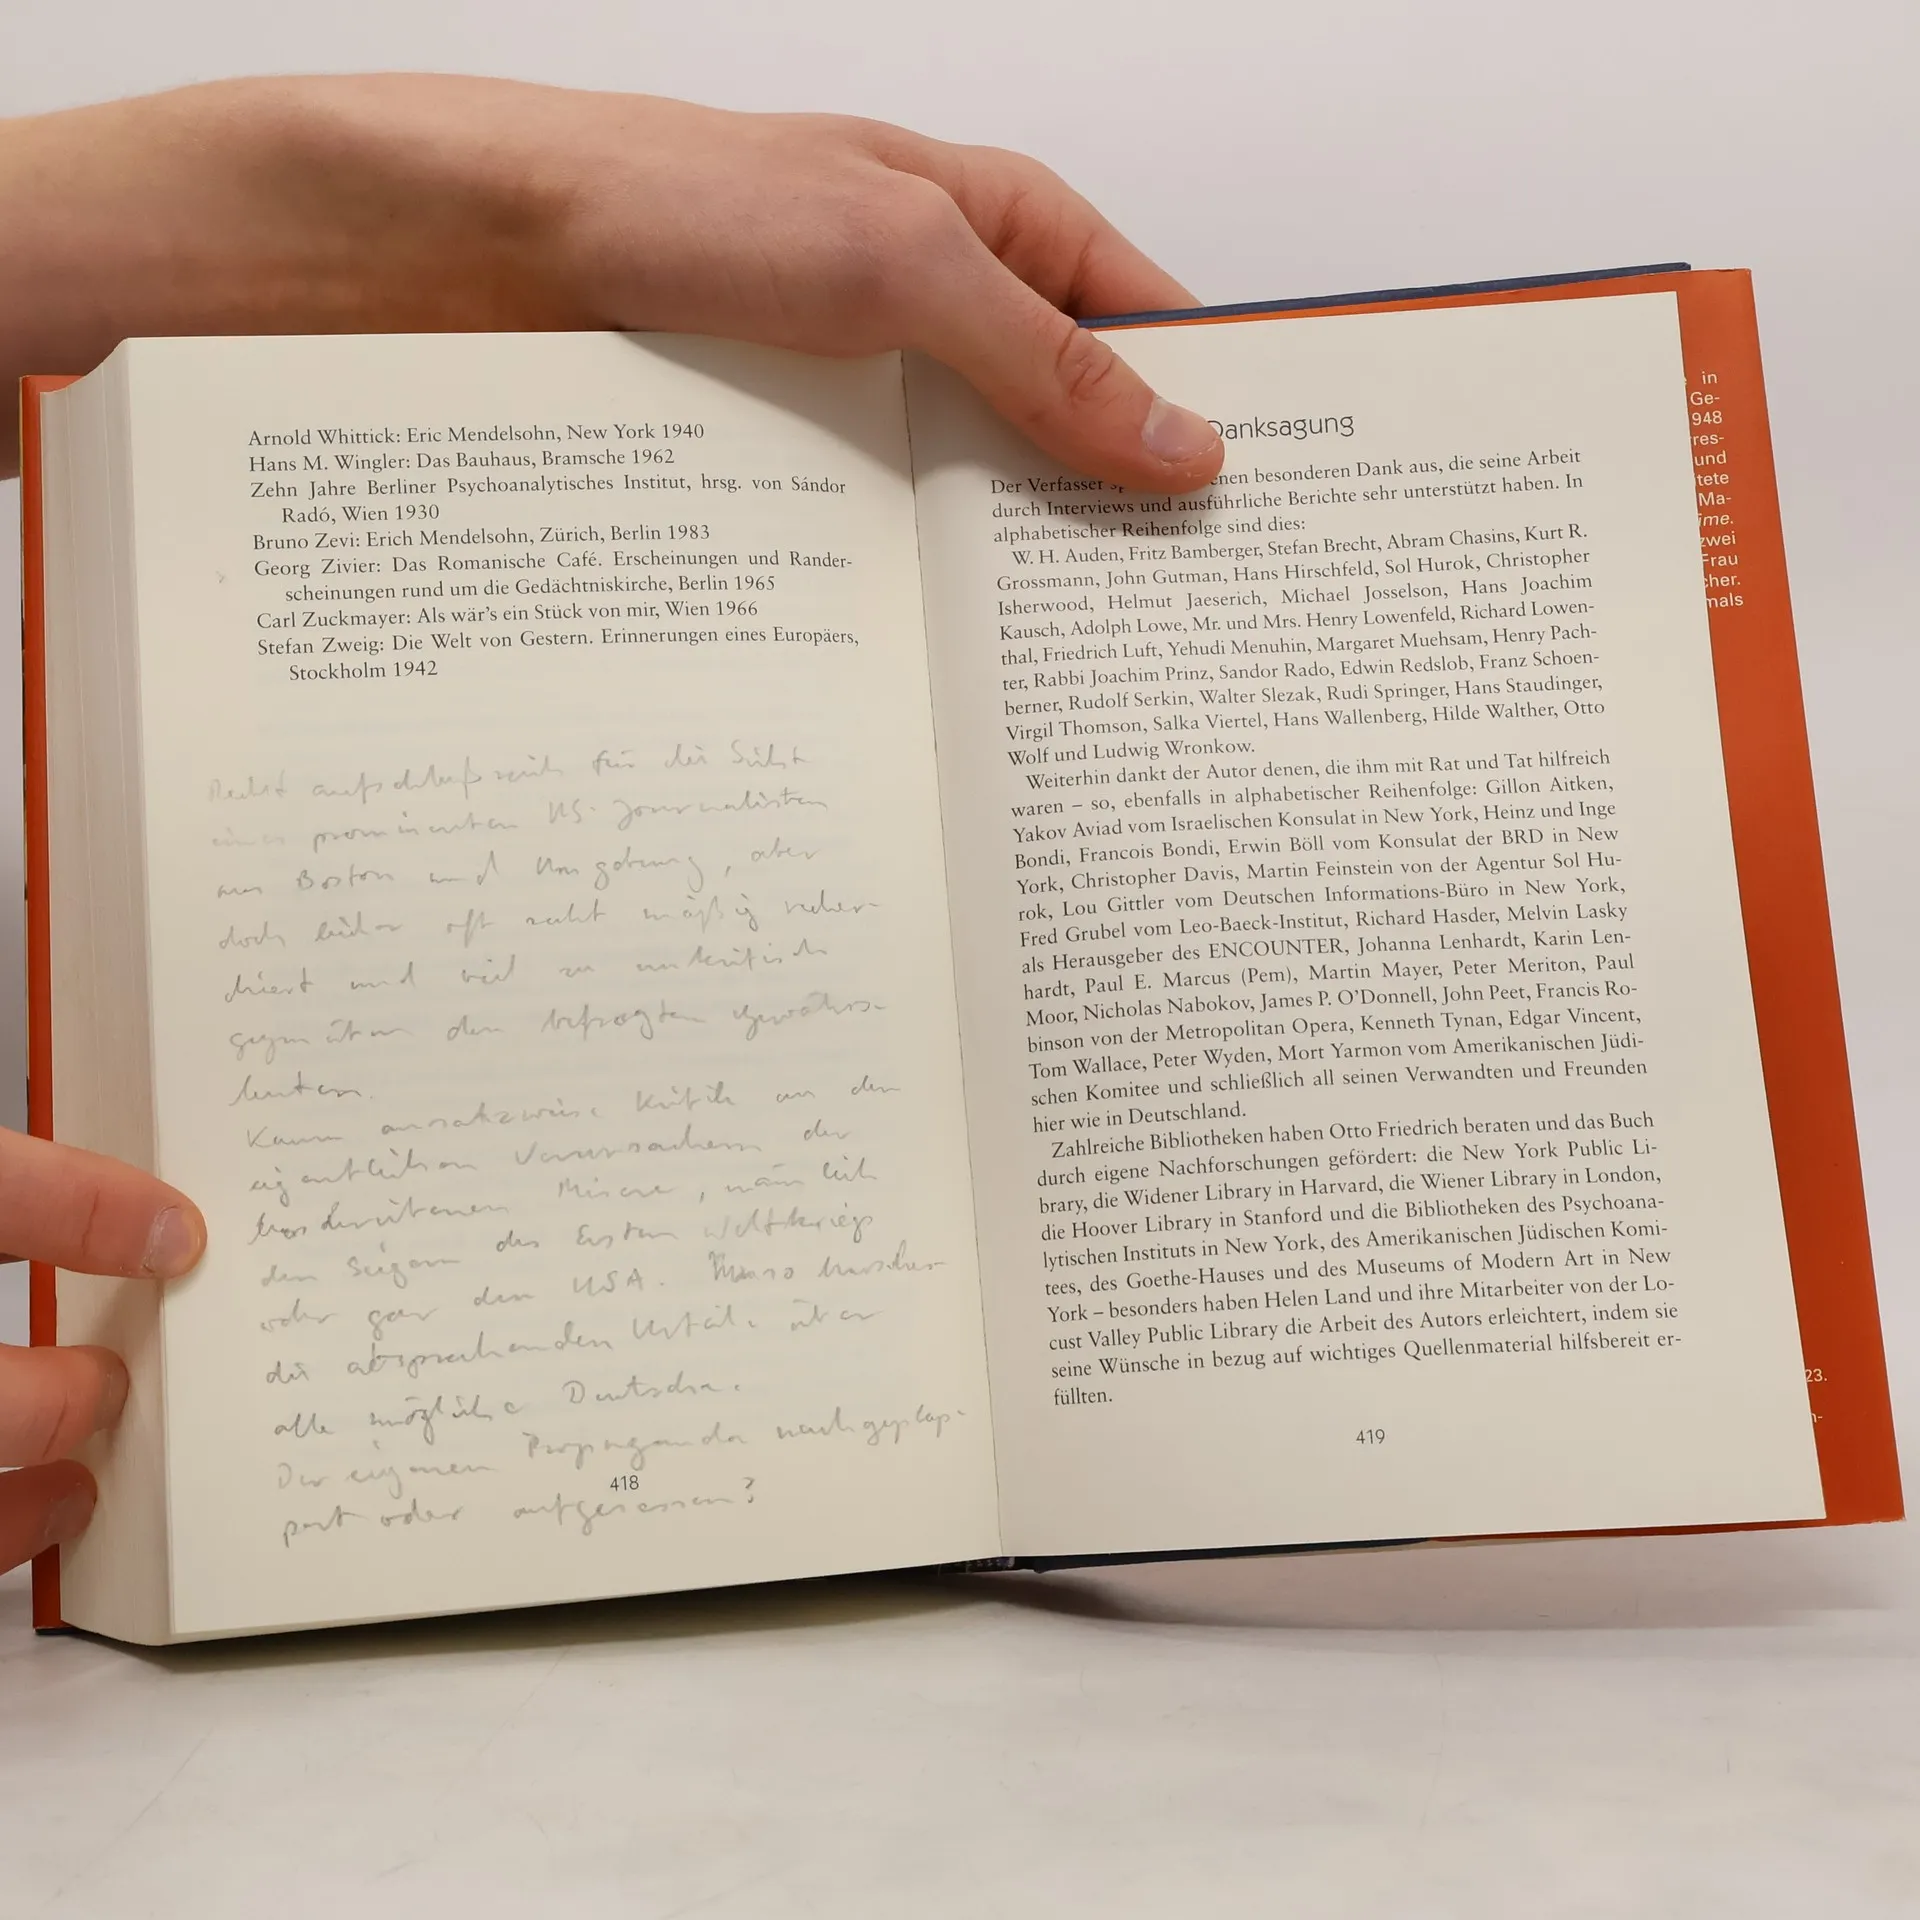 Arnold Whittick: Eric Mendelsohn, New York 1940
Hans M. Wingler: Das Bauhaus, Bramsche 1962
Zehn Jahre Berliner Psychoanalytisches Institut, hrsg. von Sándor
Radó, Wien 1930
Bruno Zevi: Erich Mendelsohn, Zürich, Berlin 1983
Georg Zivier: Das Romanische Café. Erscheinungen und Rander-
scheinungen rund um die Gedächtniskirche, Berlin 1965
Carl Zuckmayer: Als wär's ein Stück von mir, Wien 1966
Stefan Zweig: Die Welt von Gestern. Erinnerungen eines Europäers,
Stockholm 1942
Recht aufschlußreich für die Sicht
eines prominenten US-Journalisten
aus Boston und Umgebung, aber
doch leider oft recht mäßig recher-
chiert und viel zu unkritisch
gegenüber den befragten Gewährs-
leuten.
Kaum ansatzweise Kritik an den
eigentlichen Verursachern der
Misere, nämlich
den Siegern des Ersten Weltkriegs
oder gar den USA.
die absprechenden Urteile über
alle möglichen Deutschen.
Der eigenen Propaganda nachgeplap-
pert oder aufgesessen?
418
Danksagung
Der Verfasser besonderen Dank aus, die seine Arbeit
durch Interviews und ausführliche Berichte sehr unterstützt haben. In
alphabetischer Reihenfolge sind dies:
W. H. Auden, Fritz Bamberger, Stefan Brecht, Abram Chasins, Kurt R.
Grossmann, John Gutman, Hans Hirschfeld, Sol Hurok, Christopher
Isherwood, Helmut Jaeserich, Michael Josselson, Hans Joachim
Kausch, Adolph Lowe, Mr. und Mrs. Henry Lowenfeld, Richard Lowen-
thal, Friedrich Luft, Yehudi Menuhin, Margaret Muehsam, Henry Pach-
ter, Rabbi Joachim Prinz, Sandor Rado, Edwin Redslob, Franz Schoen-
berner, Rudolf Serkin, Walter Slezak, Rudi Springer, Hans Staudinger,
Virgil Thomson, Salka Viertel, Hans Wallenberg, Hilde Walther, Otto
Wolf und Ludwig Wronkow.
Weiterhin dankt der Autor denen, die ihm mit Rat und Tat hilfreich
waren – so, ebenfalls in alphabetischer Reihenfolge: Gillon Aitken,
Yakov Aviad vom Israelischen Konsulat in New York, Heinz und Inge
Bondi, Francois Bondi, Erwin Böll vom Konsulat der BRD in New
York, Christopher Davis, Martin Feinstein von der Agentur Sol Hu-
rok, Lou Gittler vom Deutschen Informations-Büro in New York,
Fred Grubel vom Leo-Baeck-Institut, Richard Hasder, Melvin Lasky
als Herausgeber des ENCOUNTER, Johanna Lenhardt, Karin Len-
hardt, Paul E. Marcus (Pem), Martin Mayer, Peter Meriton, Paul
Moor, Nicholas Nabokov, James P. O'Donnell, John Peet, Francis Ro-
binson von der Metropolitan Opera, Kenneth Tynan, Edgar Vincent,
Tom Wallace, Peter Wyden, Mort Yarmon vom Amerikanischen Jüdi-
schen Komitee und schließlich all seinen Verwandten und Freunden
hier wie in Deutschland.
Zahlreiche Bibliotheken haben Otto Friedrich beraten und das Buch
durch eigene Nachforschungen gefördert: die New York Public Li-
brary, die Widener Library in Harvard, die Wiener Library in London,
die Hoover Library in Stanford und die Bibliotheken des Psychoana-
lytischen Instituts in New York, des Amerikanischen Jüdischen Komi-
tees, des Goethe-Hauses und des Museums of Modern Art in New
York – besonders haben Helen Land und ihre Mitarbeiter von der Lo-
cust Valley Public Library die Arbeit des Autors erleichtert, indem sie
seine Wünsche in bezug auf wichtiges Quellenmaterial hilfsbereit er-
füllten.
419
in
Ge-
948
res-
und
tete
Ma-
ime.
zwei
Frau
cher.
mals
23.
n-